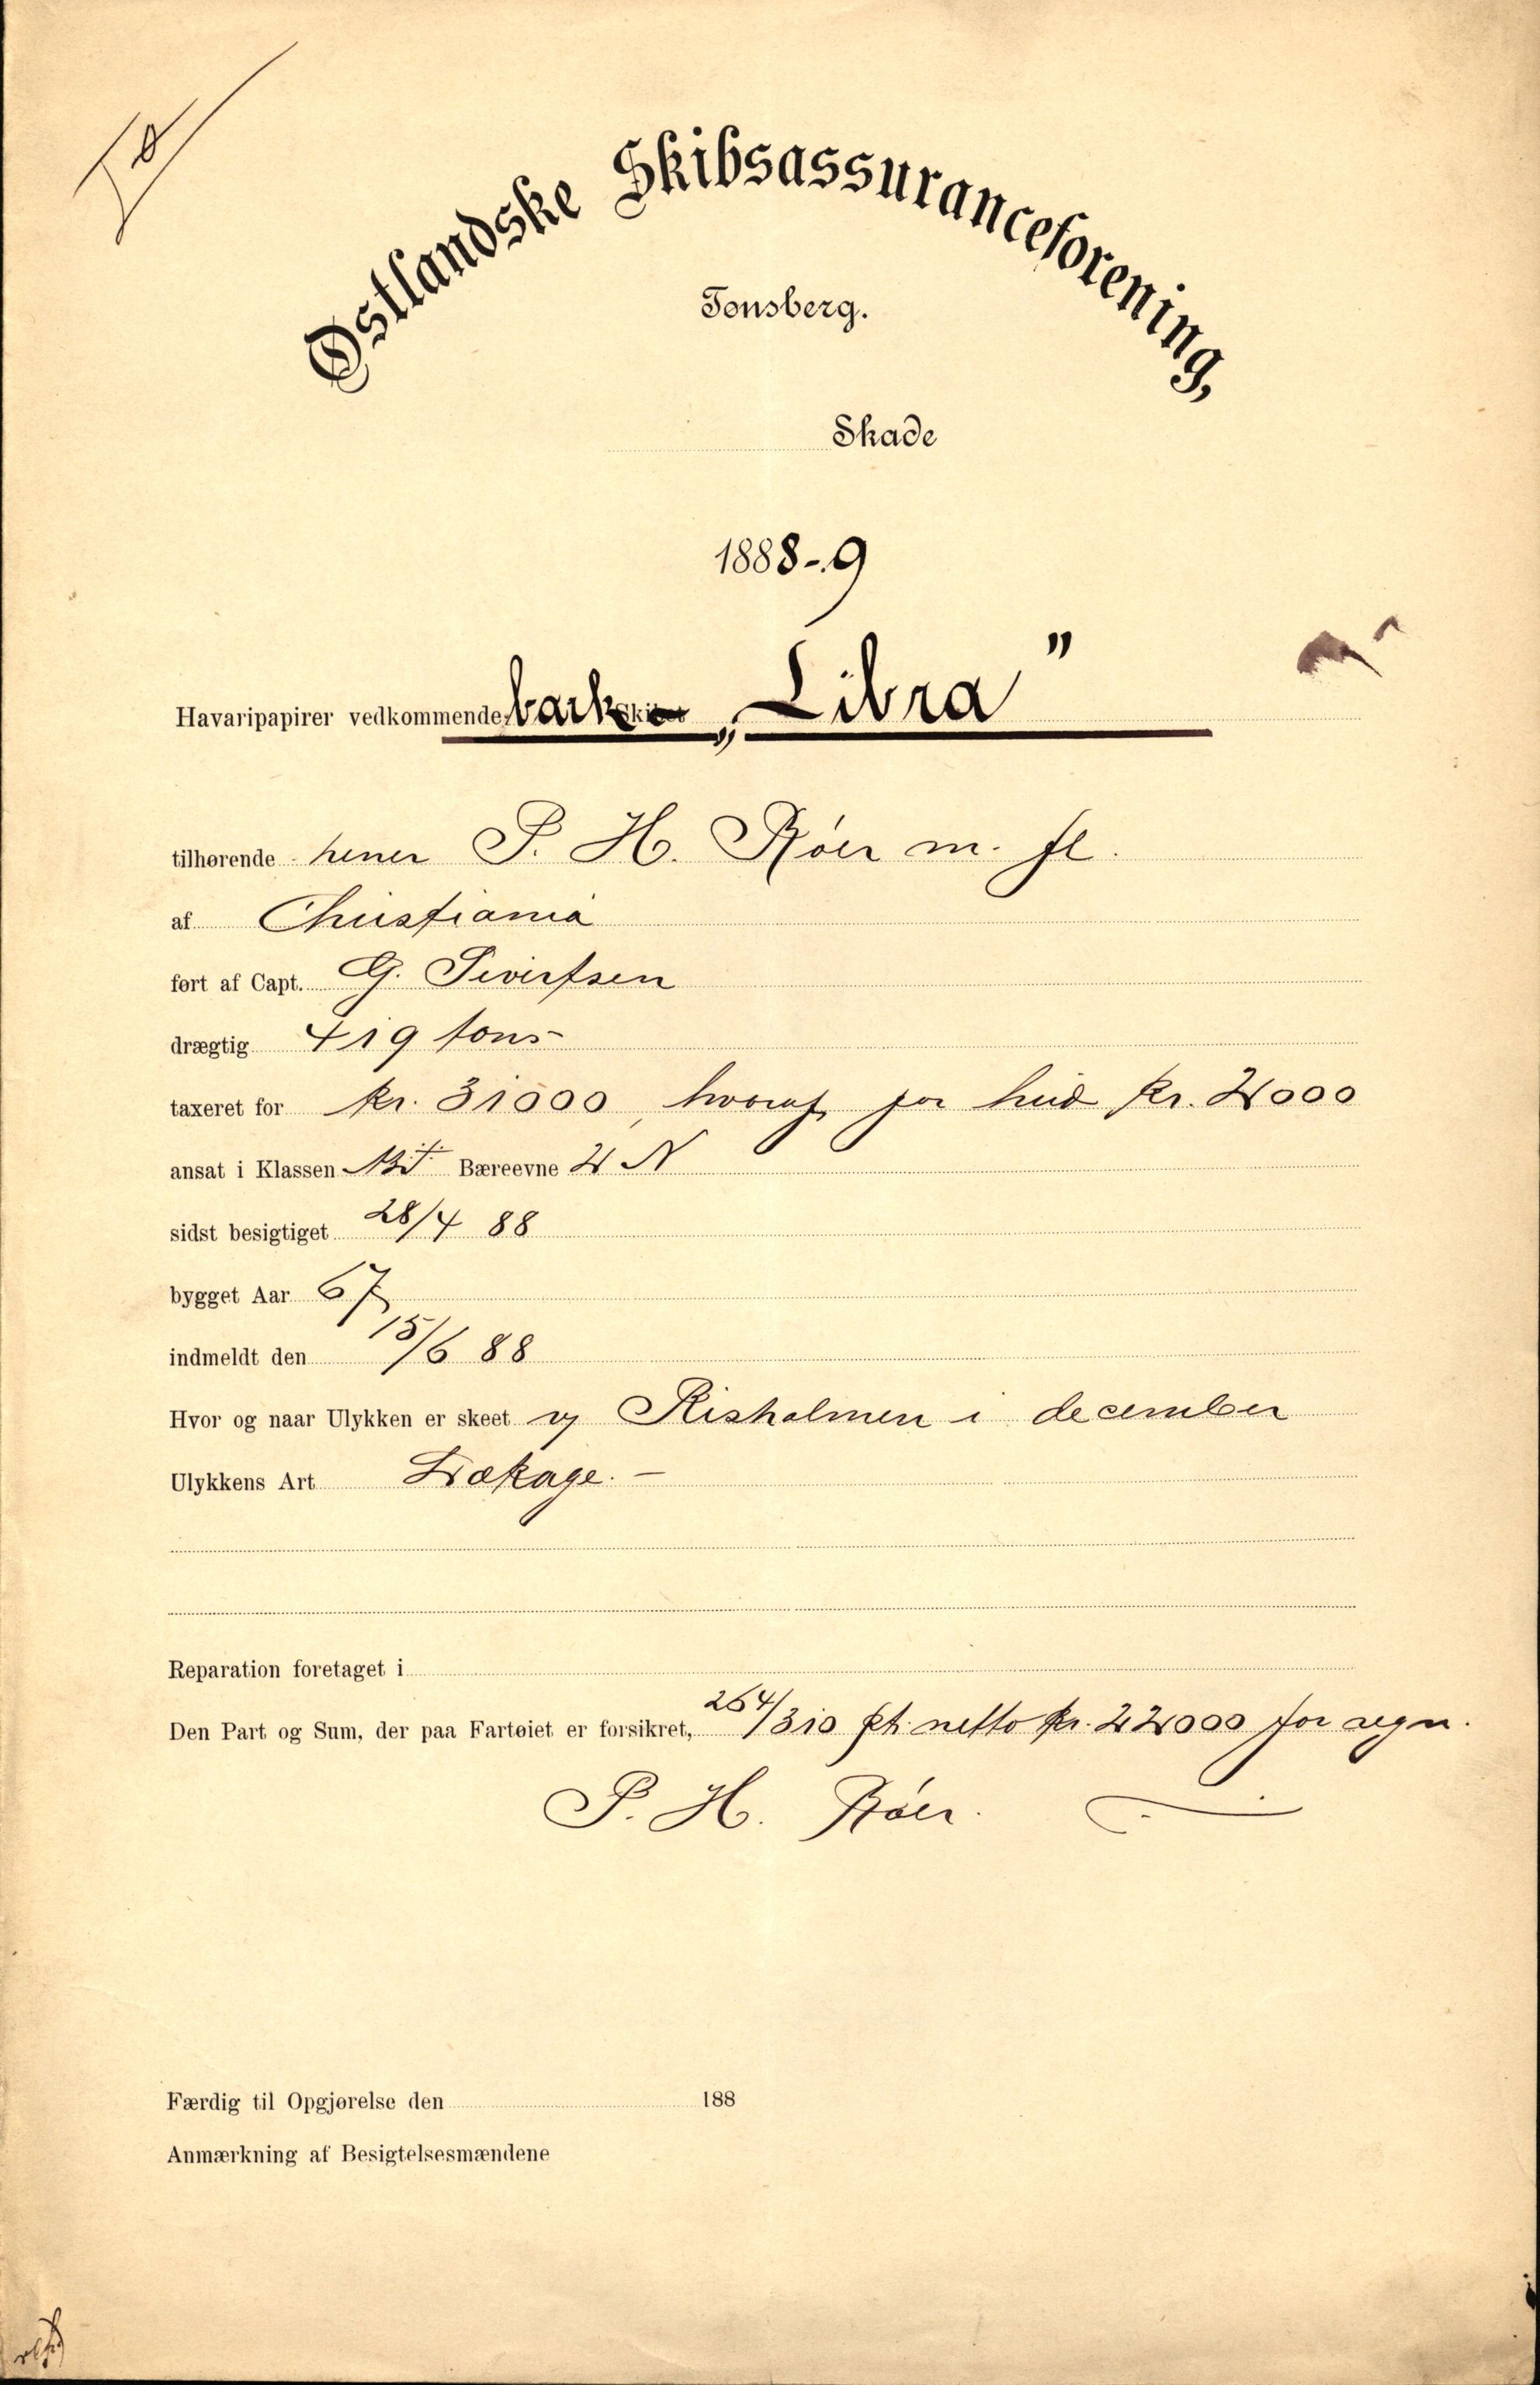 Østlandske Skibsassuranceforening,
Tønsberg.
Skade
1888-9
Havaripapirer vedkommende bark „Libra"
tilhørende herrer P. H. Röer m. fl.
af Christiania
ført af Capt. G. Sivertsen
drægtig 419 tons
taxeret for kr. 31000, hvoraf for hud kr. 2000
ansat i Klassen Bæreevne 2 N
sidst besigtiget 28/4 88
bygget Aar 67
indmeldt den 15/6 88
Hvor og naar Ulykken er skeet v Risholmen i december
Ulykkens Art Lækage. —
Reparation foretaget i
Den Part og Sum, der paa Fartøiet er forsikret, 264/310 pt. netto kr. 22000 for regn.
P. H. Röer.
Færdig til Opgjørelse den 188
Anmærkning af Besigtelsesmændene